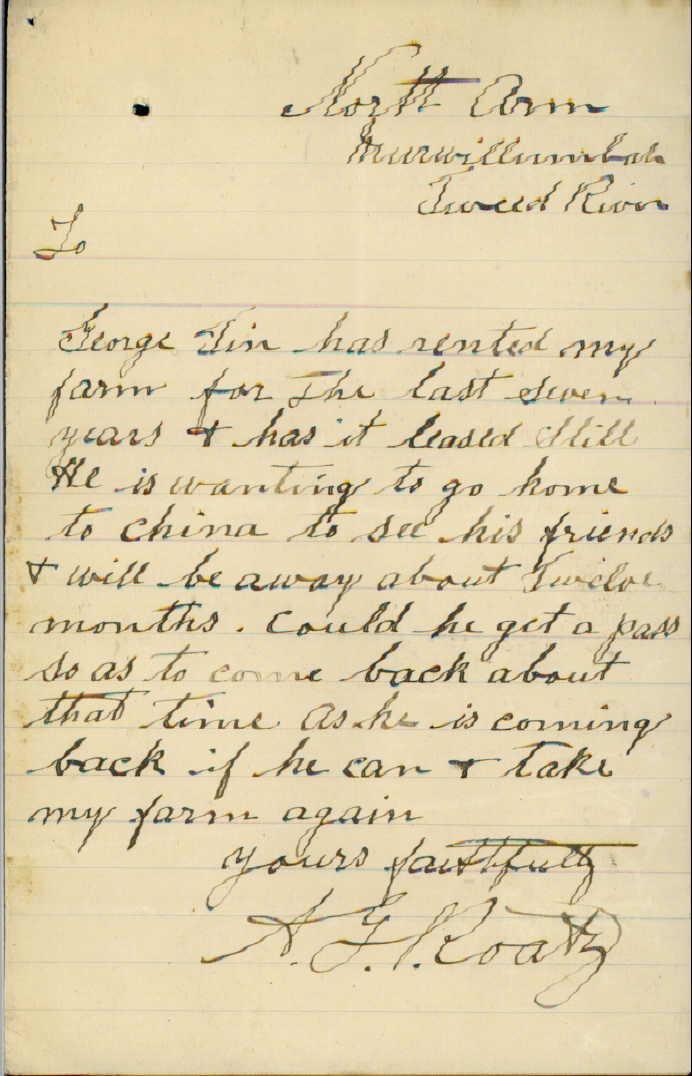 North Arm
Murwillumbah
Tweed River
To
George Tin has rented my
farm for The last Seven
years & has it leased Still
He is wanting to go home
to China to see his friends
& will be away about Twelve
months. Could he get a pass
so as to come back about
that time as he is coming
back if he can & take
my farm again
yours faithfully
A. G. Roatz